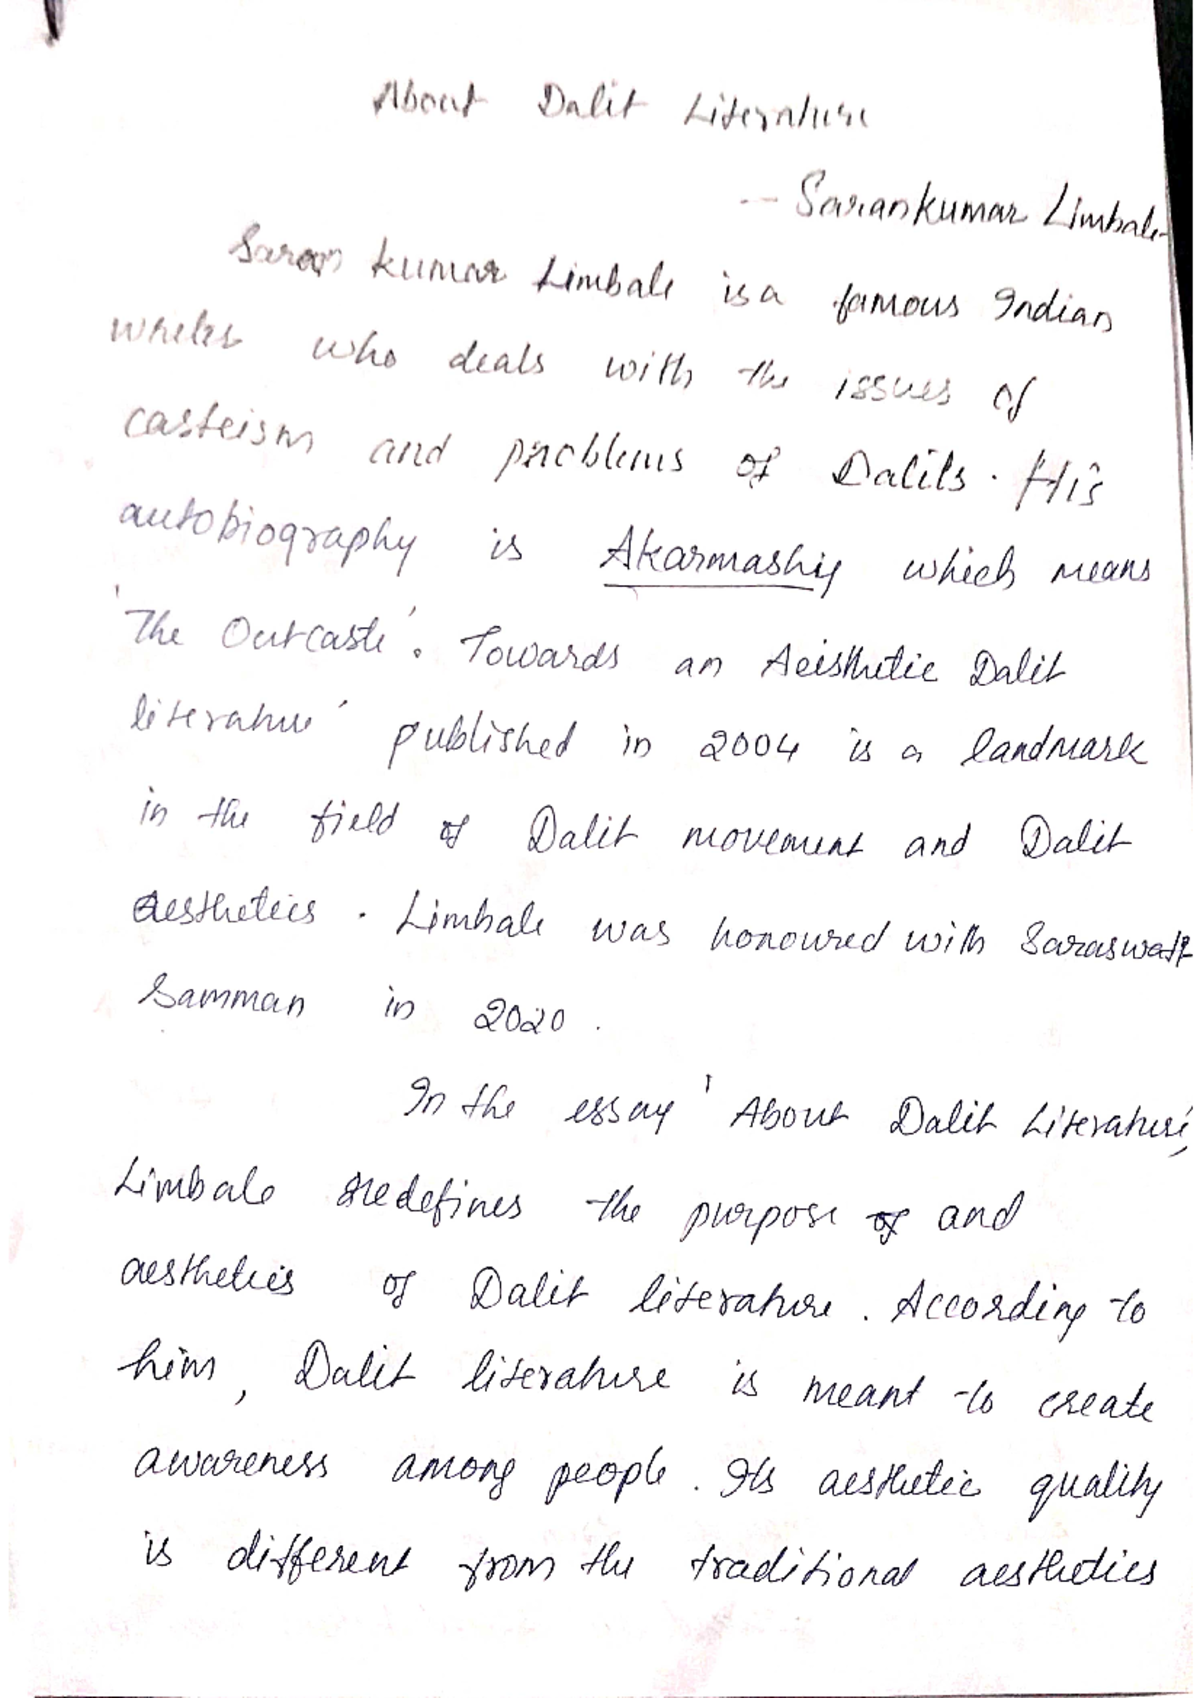 About Dalit Literature
-- Sarankumar Limbale
Saran kumar Limbale is a famous Indian
writer who deals with the issues of
casteism and problems of Dalits. His
autobiography is Akarmashiy which means
'The Outcaste'. Towards an Aeisthetic Dalit
literature' published in 2004 is a landmark
in the field of Dalit movement and Dalit
aesthetics. Limbale was honoured with Saraswati
Samman in 2020.
In the essay 'About Dalit Literature',
Limbale redefines the purpose of and
aesthetics of Dalit literature. According to
him, Dalit literature is meant to create
awareness among people. Its aesthetic quality
is different from the traditional aesthetics